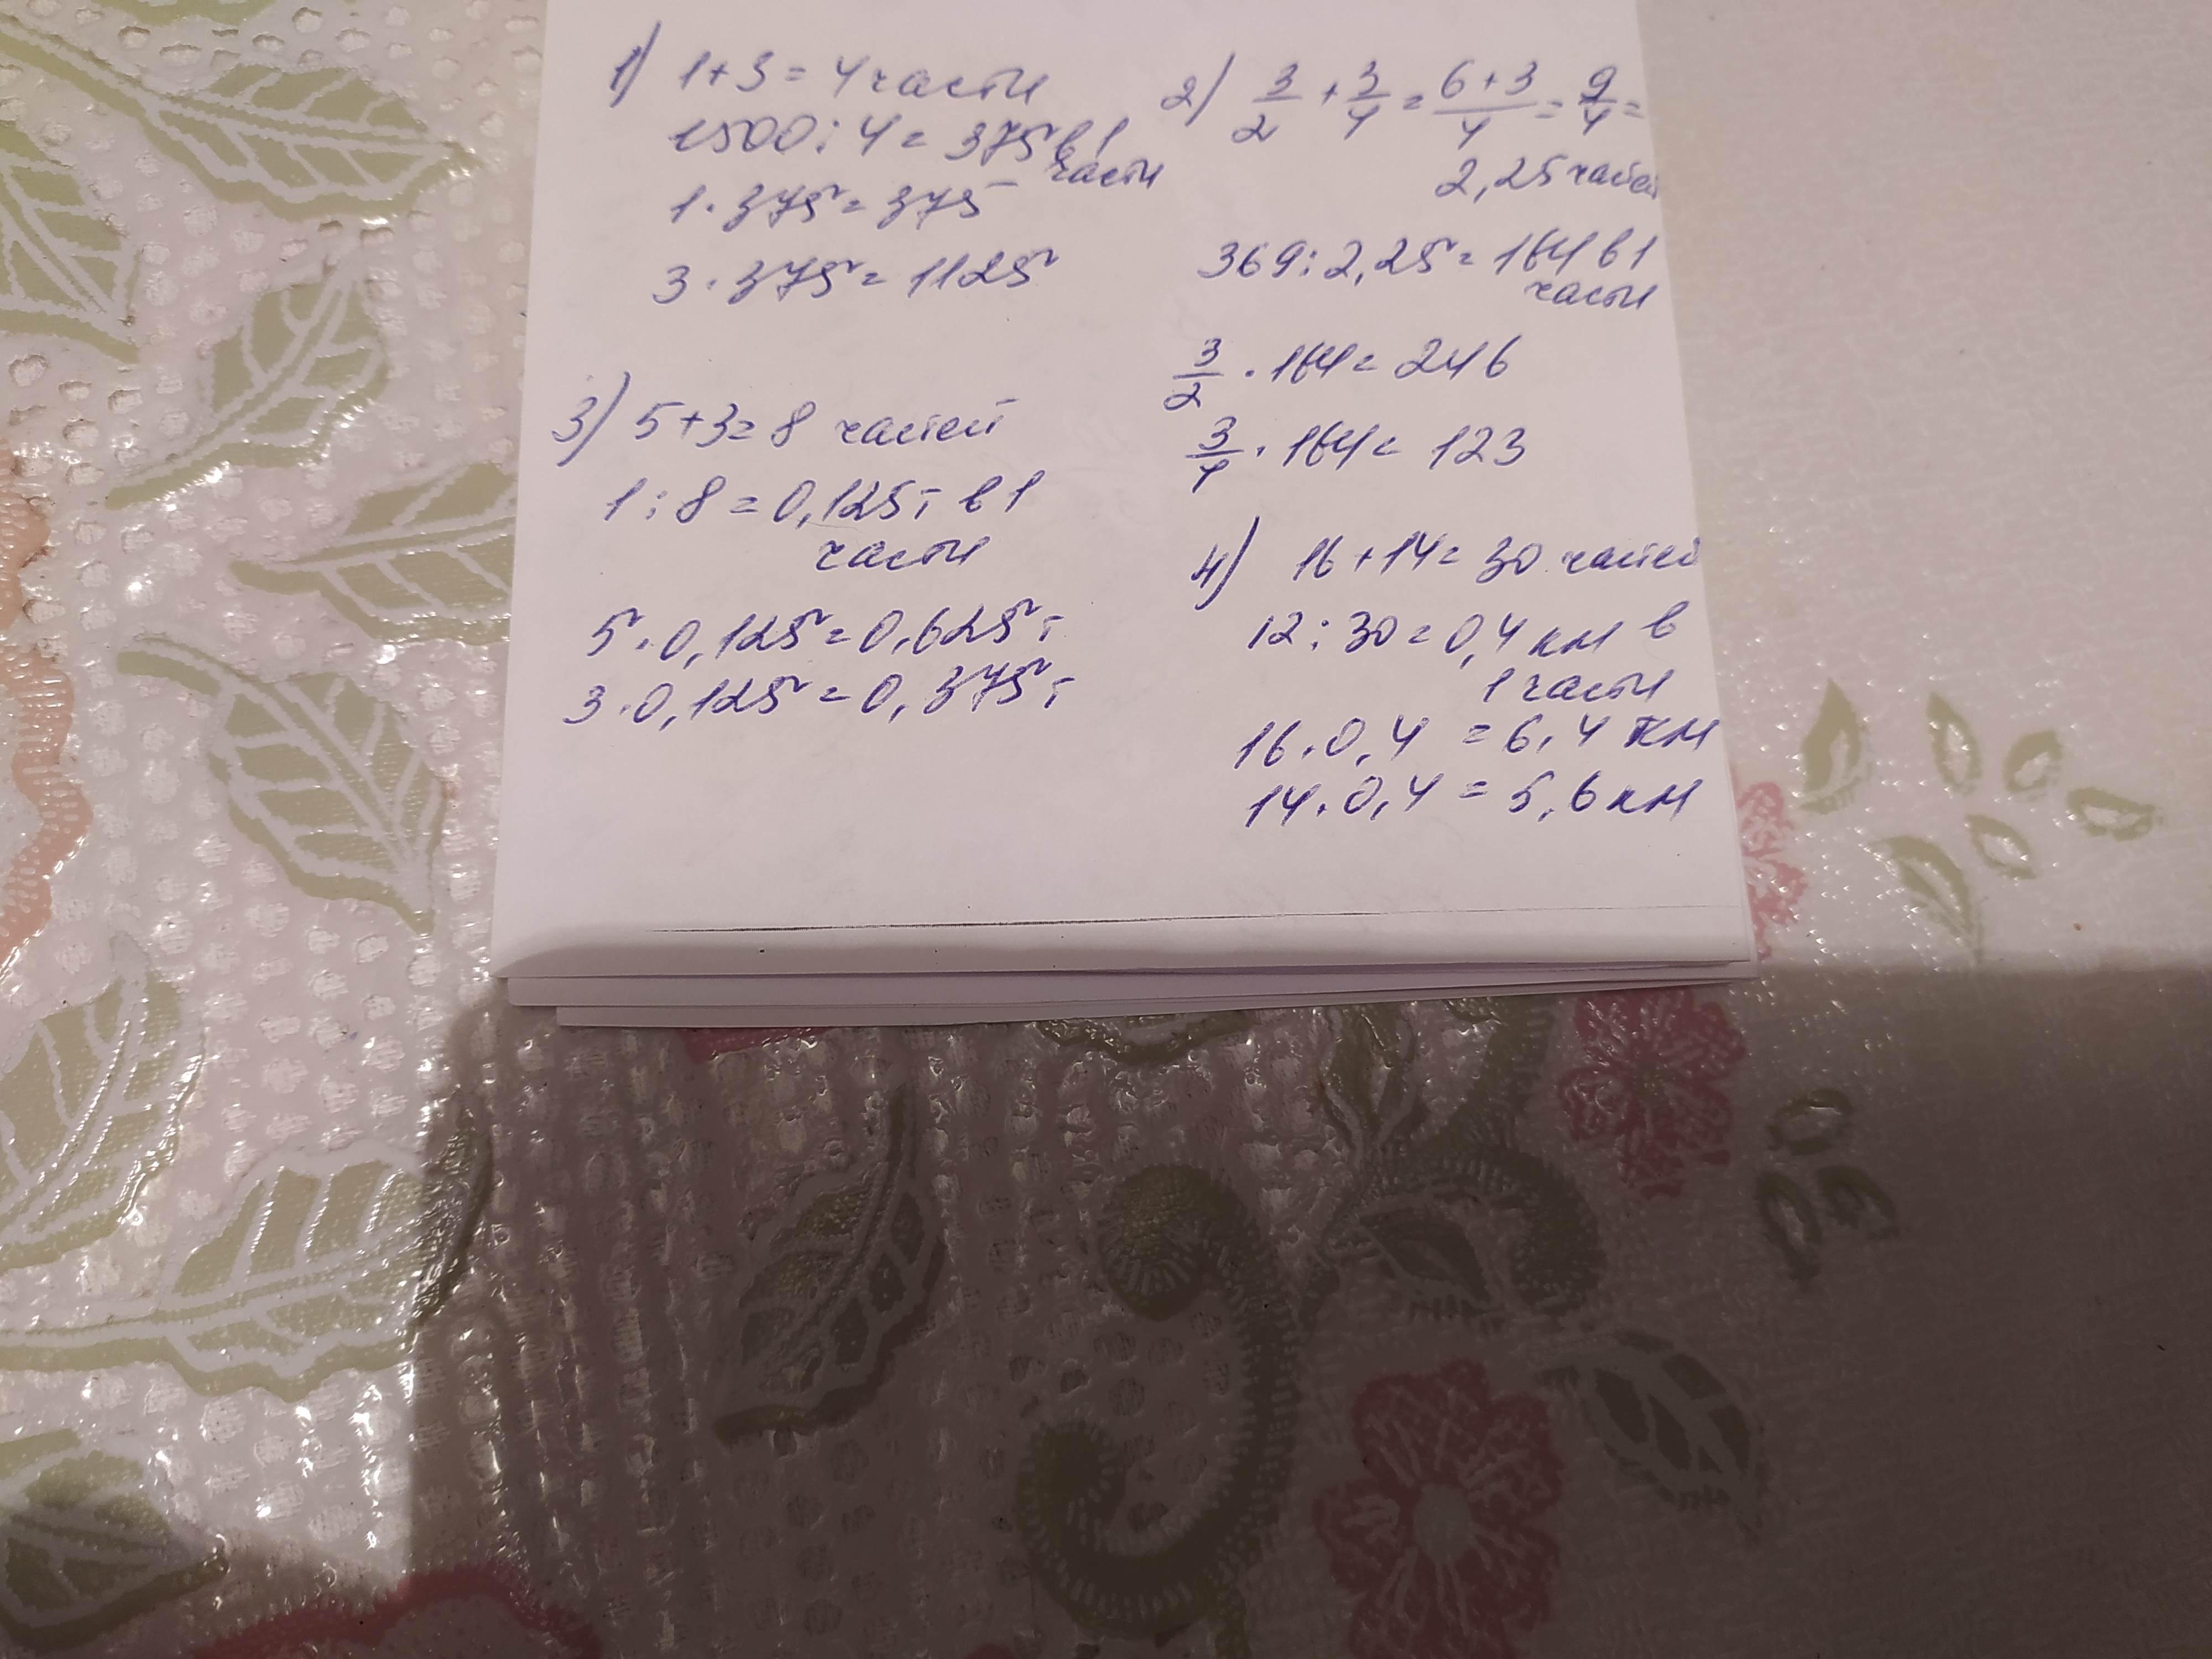 1) 1+3=4 части
1500:4=375 в 1
части
1·375=375
3·375=1125
2) 3/2+3/4=6+3/4=9/4=
2,25 частей
369:2,25=164 в 1
части
3/2·164=246
3/4·164=123
3) 5+3=8 частей
1:8=0,125т в 1
части
5·0,125=0,625т
3·0,125=0,375т
4) 16+14=30 частей
12:30=0,4 км в
1 части
16·0,4=6,4 км
14·0,4=5,6 км